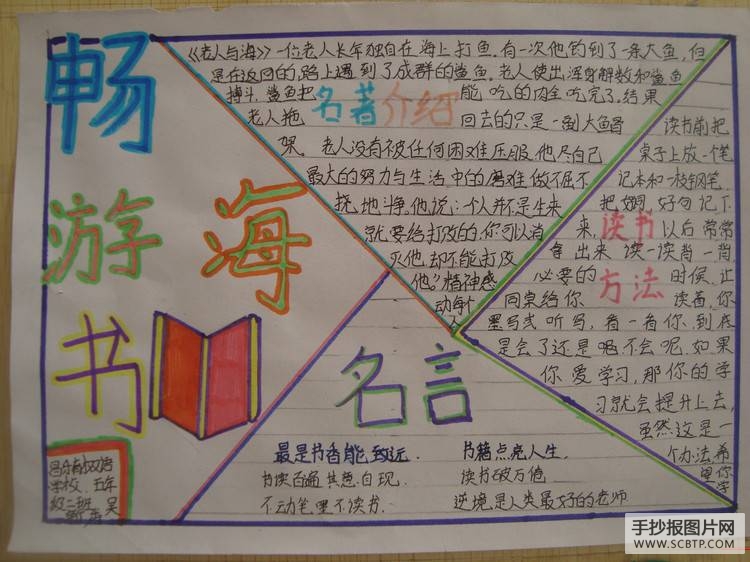 畅
游
书
海
《老人与海》一位老人长年独自在海上打鱼.有一次他钓到了一条大鱼,但
是在返回的路上遇到了成群的鲨鱼.老人使出浑身解数和鲨鱼
搏斗.鲨鱼把能吃的肉全吃完了.结果
名著介绍
老人拖回去的只是一副大鱼骨
架.老人没有被任何困难压服.他尽自己
最大的努力与生活中的磨难做不屈不
挠地斗争.他说:一个人并不是生来
就要给打败的.你可以消
灭他却不能打败
他。"精神感
动每个
人
读书前把
桌子上放一个笔
记本和一枝钢笔.
把好词好句记下
来,以后常常
拿出来读一读背一背.
必要的时候,让
同桌给你读着,你
墨写或听写,看一看你到底
是会了还是不会呢.如果
你爱学习,那你的学
习就会提升上去,
虽然这是一
个办法希
望你学
读书
方法
名言
最是书香能致远
书读百遍其意自现
不动笔墨不读书.
书籍点亮人生.
读书破万倦.
逆境是人类最好的老师
学校.五年
级二班 吴
手抄报图片网
WWW.SCBTP.COM